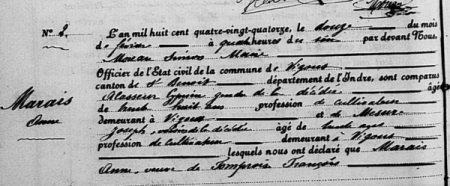 N° 2.
L'an mil huit cent quatre-vingt-quatorze, le douze du mois
de février à quatre heures du soir par devant Nous,
Moreau Simon Marie
Officier de l'Etat civil de la commune de Vigoux
canton de St Benoit département de l'Indre, sont comparus
gendre de la décédée âgé
Marais
Anne
de trente huit ans profession de cultivateur
demeurant à Vigoux et de Mesure
Joseph, voisin de la décédée âgé de trente ans
profession de cultivateur demeurant à Vigoux
lesquels nous ont déclaré que Marais
Anne veuve de François